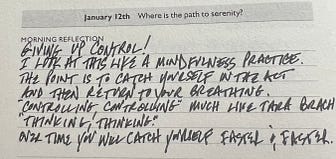 January 12th Where is the path to serenity?
MORNING REFLECTION
GIVING UP CONTROL!
I LOOK AT THIS LIKE A MINDFULNESS PRACTICE.
THE POINT IS TO CATCH YOURSELF IN THE ACT
AND THEN RETURN TO YOUR BREATHING.
"CONTROLLING CONTROLLING" MUCH LIKE TARA BRACH
"THINKING! THINKING."
OVER TIME YOU WILL CATCH YOURSELF FASTER & FASTER.